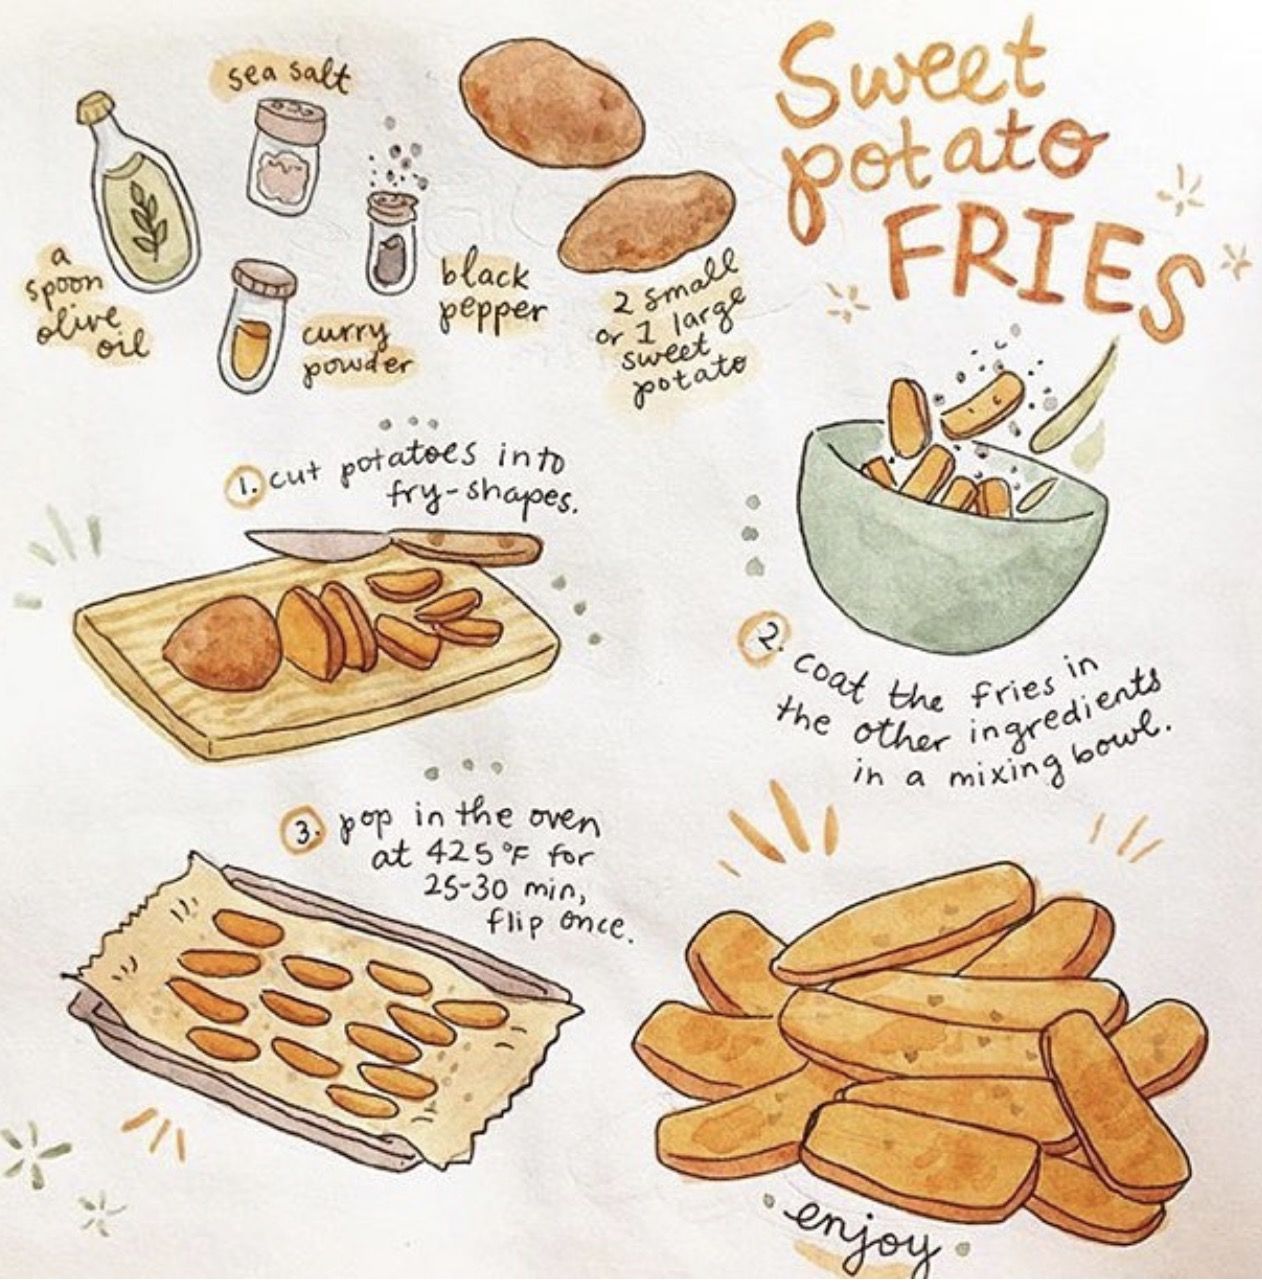 Sweet
potato
FRIES
sea salt
a
spoon
olive
oil
curry
powder
black
pepper
2 small
or 1 large
sweet
potato
1. cut potatoes into
fry-shapes.
2. coat the fries in
the other ingredients
in a mixing bowl.
3. pop in the oven
at 425°F for
25-30 min,
flip once.
enjoy